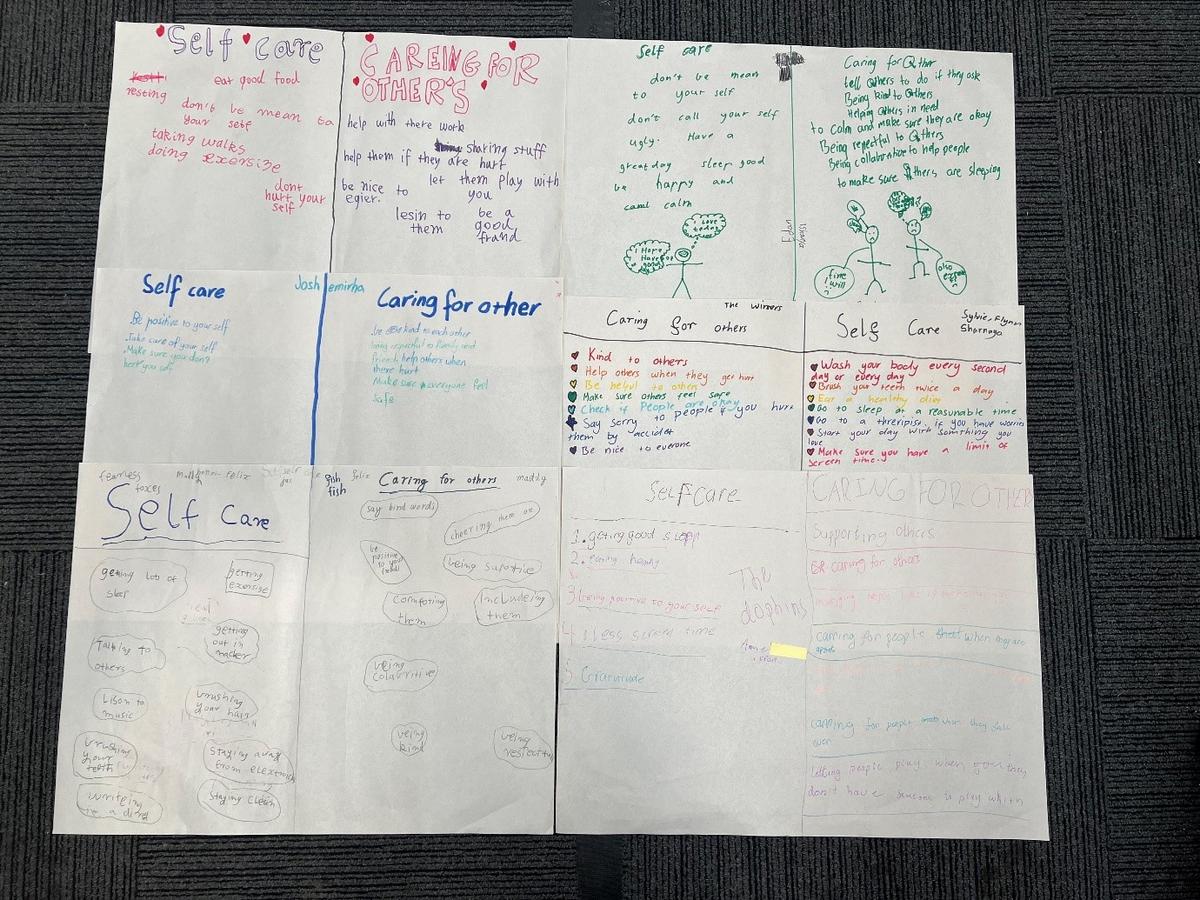 Self care
resting
eat good food
don't be mean to
your self
taking walks
doing exersize
dont
hurt your
self
CAREING FOR
OTHER'S
help with there work
sharing stuff
help them if they are hurt
let them play with
you
be nice to
egier.
lesin to
them
be a
good
frand
Self care
don't be mean
to your self
don't call your self
ugly. Have a
great day sleep good
be happy and
calm
I love
today
I Hope
I Have
good
Caring for Other
tell Others to do if they ask
Being kind to Others
Helping Others in need
to calm and make sure they are okay
Being repectful to Others
Being collaborative to help people
to make sure Others are sleeping
fine
I will
Self care
Josh
Be positive to your self
Take care of your self
Make sure you don't
hert you self
emirha
Caring for other
be kind to each other
being respectful to family and
friends help others when
there hurt
Make sure everyone feel
safe
The winners
Caring for others
Kind to others
Help others when they get hurt
Be helful to others
Make sure others feel safe
Check if People are okay
Say sorry to people if you hurt
them by accidet
Be nice to everone
Sylvie, Flynn
Self Care
Wash your body every second
day or every day
Brush your teeth twice a day
Eat a healthy diet
Go to sleep at a reasunable time
Go to a threripise if you have worries
Start your day with something you
love
Make sure you have a limit of
screen time.
fearless
foxes
felix
Self Care
getting lots of
sleep
getting
exersise
Talking to
others
getting
out in
Lison to
music
brushing
your hair
brushing
your
teeth
staying away
from
staying clean
writeing
in a
fish
felix
Caring for others
maddy
say kind words
cheering them on
be
positive to your
friend
being suportive
comforting
them
Includeing
them
being
colabritive
being
kind
being
Self care
1. geting good sleep
2. eating healthy
3. being positive to your self
4. less screen time
5. Gratitude
The
dophins
CARING FOR OTHERS
Supporting others
caring for others
carring for people when they
carring for people when they fall
over
letting people play when they
don't have someone to play which